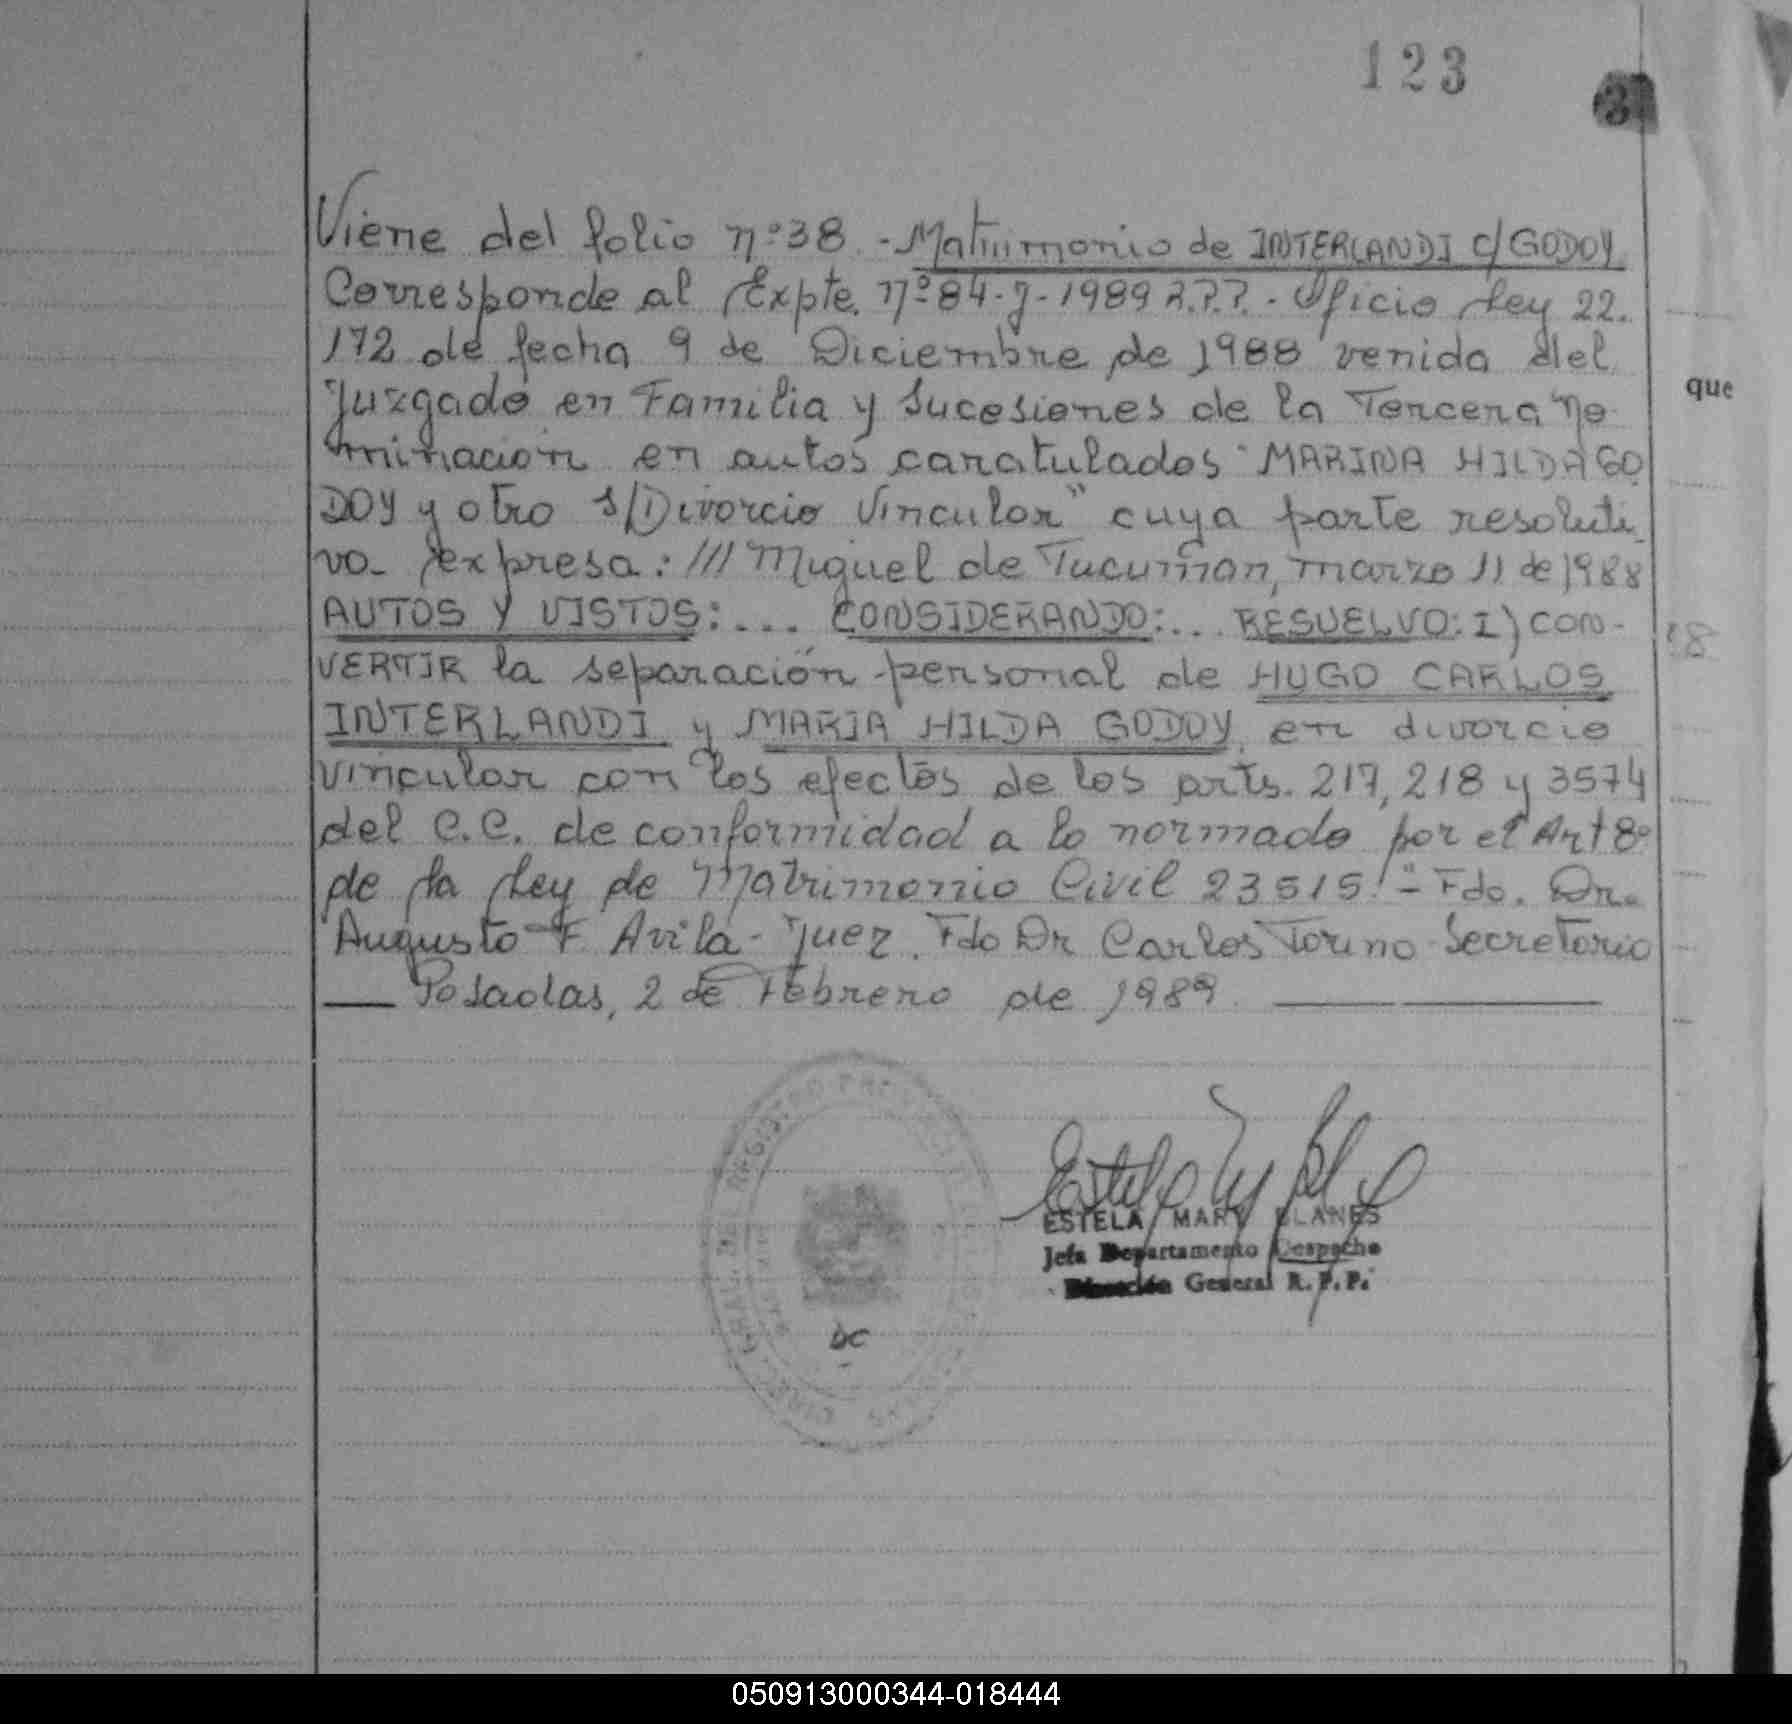 123
3
Viene del folio nº 38 - Matrimonio de INTERLANDI c/ GODOY
Corresponde al Expte. nº 84-J-1989 R.P.P. - Oficio Ley 22.
172 de fecha 9 de Diciembre de 1988 venido del
Juzgado en Familia y Sucesiones de la Tercera No
minación en autos caratulados "MARINA HILDA GO
DOY y otro s/Divorcio Vincular" cuya parte resoluti
va expresa: /// Miguel de Tucumán, marzo 11 de 1988
AUTOS Y VISTOS:... CONSIDERANDO:... RESUELVO: I) CON-
VERTIR la separación personal de HUGO CARLOS
INTERLANDI y MARIA HILDA GODOY, en divorcio
vincular con los efectos de los arts. 217, 218 y 3574
del C.C. de conformidad a lo normado por el Art 8º
de la Ley de Matrimonio Civil 23515." - Fdo. Dr.
Augusto F. Avila - Juez. Fdo Dr Carlos Torino - Secretario
Posadas, 2 de Febrero de 1989.
que
ESTELA MARY BLANES
Jefa Departamento Despacho
Dirección General R.P.P.
050913000344-018444